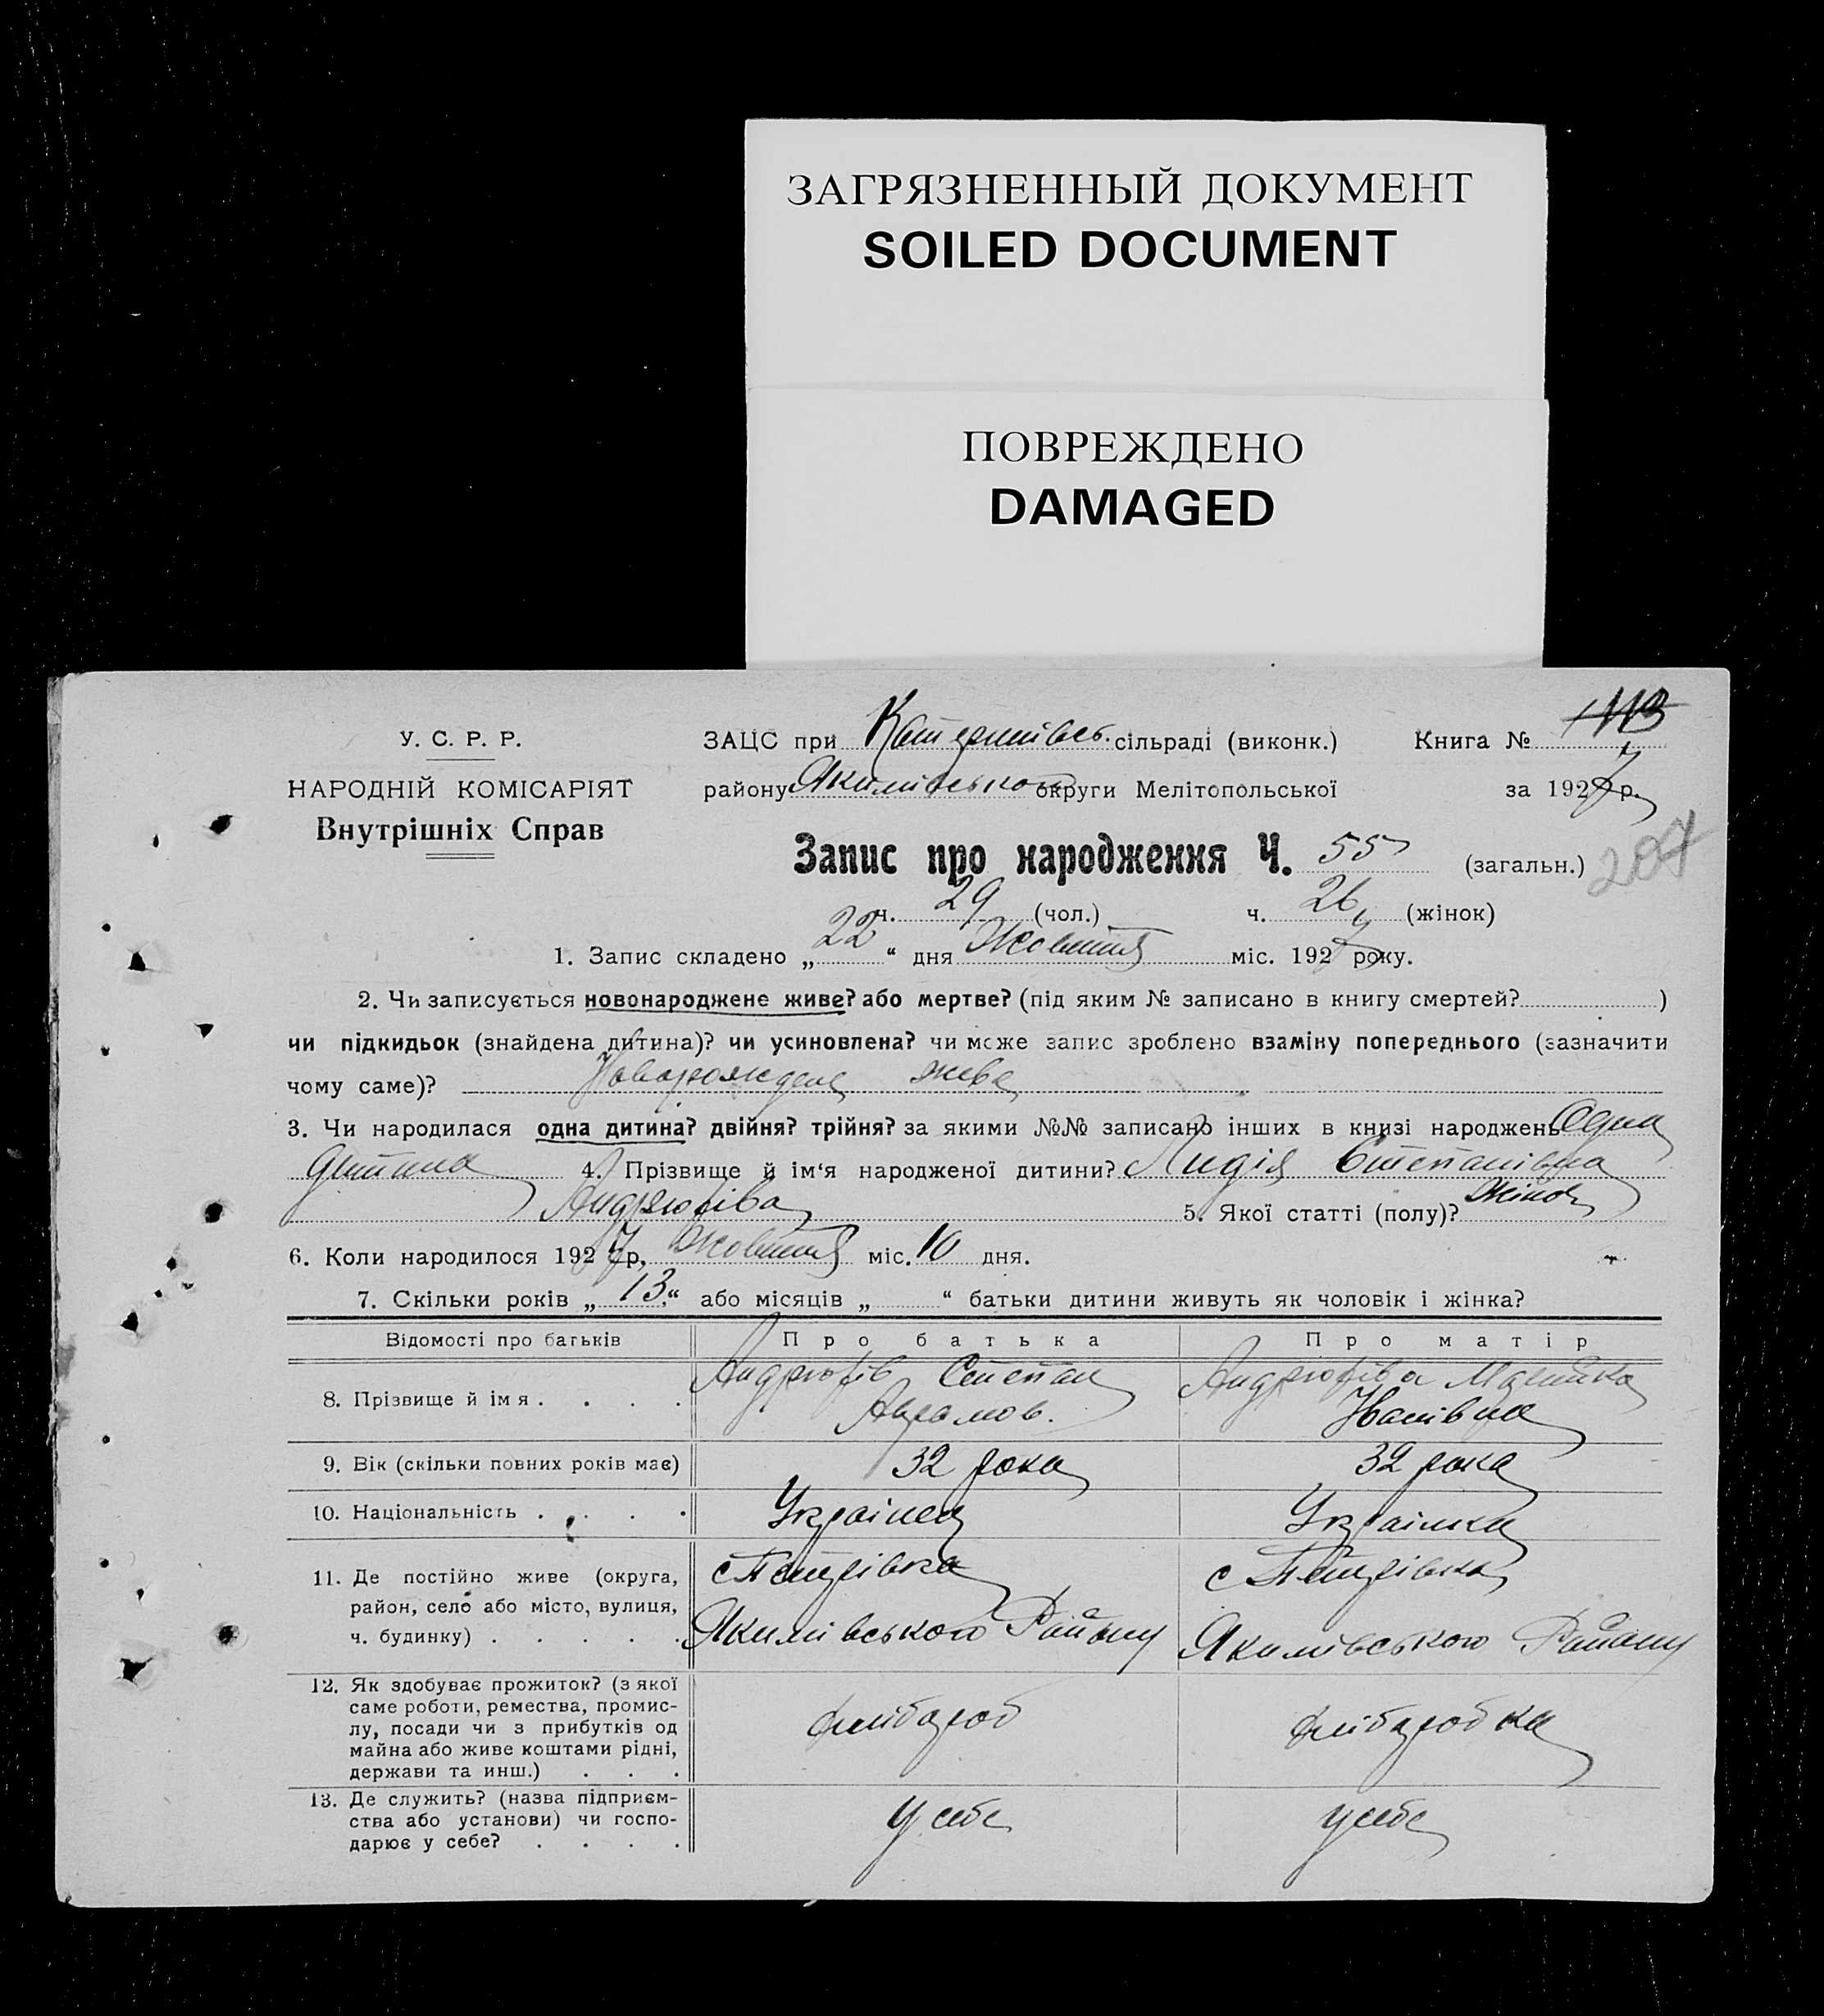 ЗАГРЯЗНЕННЫЙ ДОКУМЕНТ
SOILED DOCUMENT
ПОВРЕЖДЕНО
DAMAGED
У. С. Р. Р.
НАРОДНІЙ КОМІСАРІЯТ
Внутрішніх Справ
ЗАЦС при сільраді (виконк.) Книга №
району Якимівського округи Мелітопольської за 1927 р.
Запис про народження Ч. 55 (загальн.) 207
ч. 29 (чол.) ч. 26 (жінок)
1. Запис складено „ 22 “ дня Жовтня міс. 1927 року.
2. Чи записується новонароджене живе? або мертве? (під яким № записано в книгу смертей? )
чи підкидьок (знайдена дитина)? чи усиновлена? чи може запис зроблено взаміну попереднього (зазначити
чому саме)? жива
3. Чи народилася одна дитина? двійня? трійня? за якими №№ записано інших в книзі народжень Одна
дитина 4. Прізвище й ім‘я народженої дитини? Лидія Степанівна
5. Якої статті (полу)? Жіноч
6. Коли народилося 1927 р, Жовтня міс. 10 дня.
7. Скільки років „ 13 “ або місяців „ “ батьки дитини живуть як чоловік і жінка?
Відомості про батьків Про батька Про матір
8. Прізвище й імя . . . . Степан
Іванівна
9. Вік (скільки повних років має) 32 рока 32 рока
10. Національність . . . . Українец Українка
11. Де постійно живе (округа, с Петрівка с Петрівка
район, село або місто, вулиця,
ч. будинку) . . . . . Якимівського Району Якимівського Району
12. Як здобуває прожиток? (з якої
саме роботи, ремества, промис-
лу, посади чи з прибутків од хлібороб хліборобка
майна або живе коштами рідні,
держави та инш.) . . .
13. Де служить? (назва підприєм-
ства або установи) чи госпо- У себе у себе
дарює у себе? . . . .